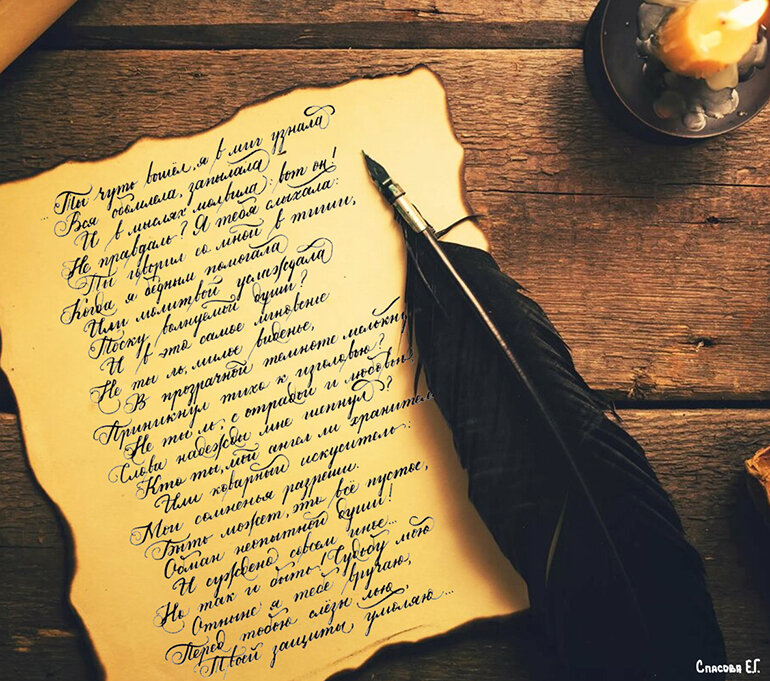 ...Ты чуть вошёл, я в миг узнала
Вся обомлела, запылала
И в мыслях молвила: вот он!
Не правдаль? Я тебя слыхала:
Ты говорил со мной в тиши,
Когда я бедным помогала
Или молитвой услаждала
Тоску волнуемой души?
И в это самое мгновенье
Не ты ль, милое виденье,
В прозрачной темноте мелькну
Приникнул тихо к изголовью?
Не ты ль, с отрадой и любовью
Слова надежды мне шепнул?
Кто ты, мой ангел ли хранитель
Или коварный искуситель:
Мои сомненья разреши.
Быть может, это всё пустое,
Обман неопытной души!
И суждено совсем иное...
Но так и быть! Судьбу мою
Отныне я тебе вручаю,
Перед тобою слёзы лью,
Твоей защиты умоляю...
Спасова Е.Г.